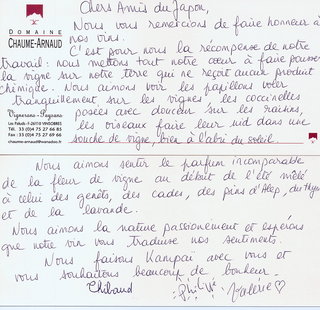 Chers Amis du Japon,
Nous vous remercions de faire honneur à
nos vins.
C'est pour nous la récompense de notre
travail : nous mettons tout notre cœur à faire pousser
la vigne sur notre terre qui ne reçoit aucun produit
chimique. Nous aimons voir les papillons voler
tranquillement sur les vignes, les coccinelles
posées avec douceur sur les raisins,
les oiseaux faire leur nid dans une
souche de vigne, bien à l'abri du soleil.
DOMAINE
CHAUME-ARNAUD
Vignerons - Paysans
Les Paluds - F-26110 VINSOBRES
Tél. 33 (0)4 75 27 66 85
Fax 33 (0)4 75 27 69 66
chaume-arnaud@wanadoo.fr
Nous aimons sentir le parfum incomparable
de la fleur de vigne au début de l'été mêlé
à celui des genêts, des cades, des pins d'Alep, du thym
et de la lavande.
Nous aimons la nature passionément et espérons
que notre vin vous traduise nos sentiments.
Nous faisons Kampai avec vous et
vous souhaitons beaucoup de bonheur.
Thibaud Philippe Valérie